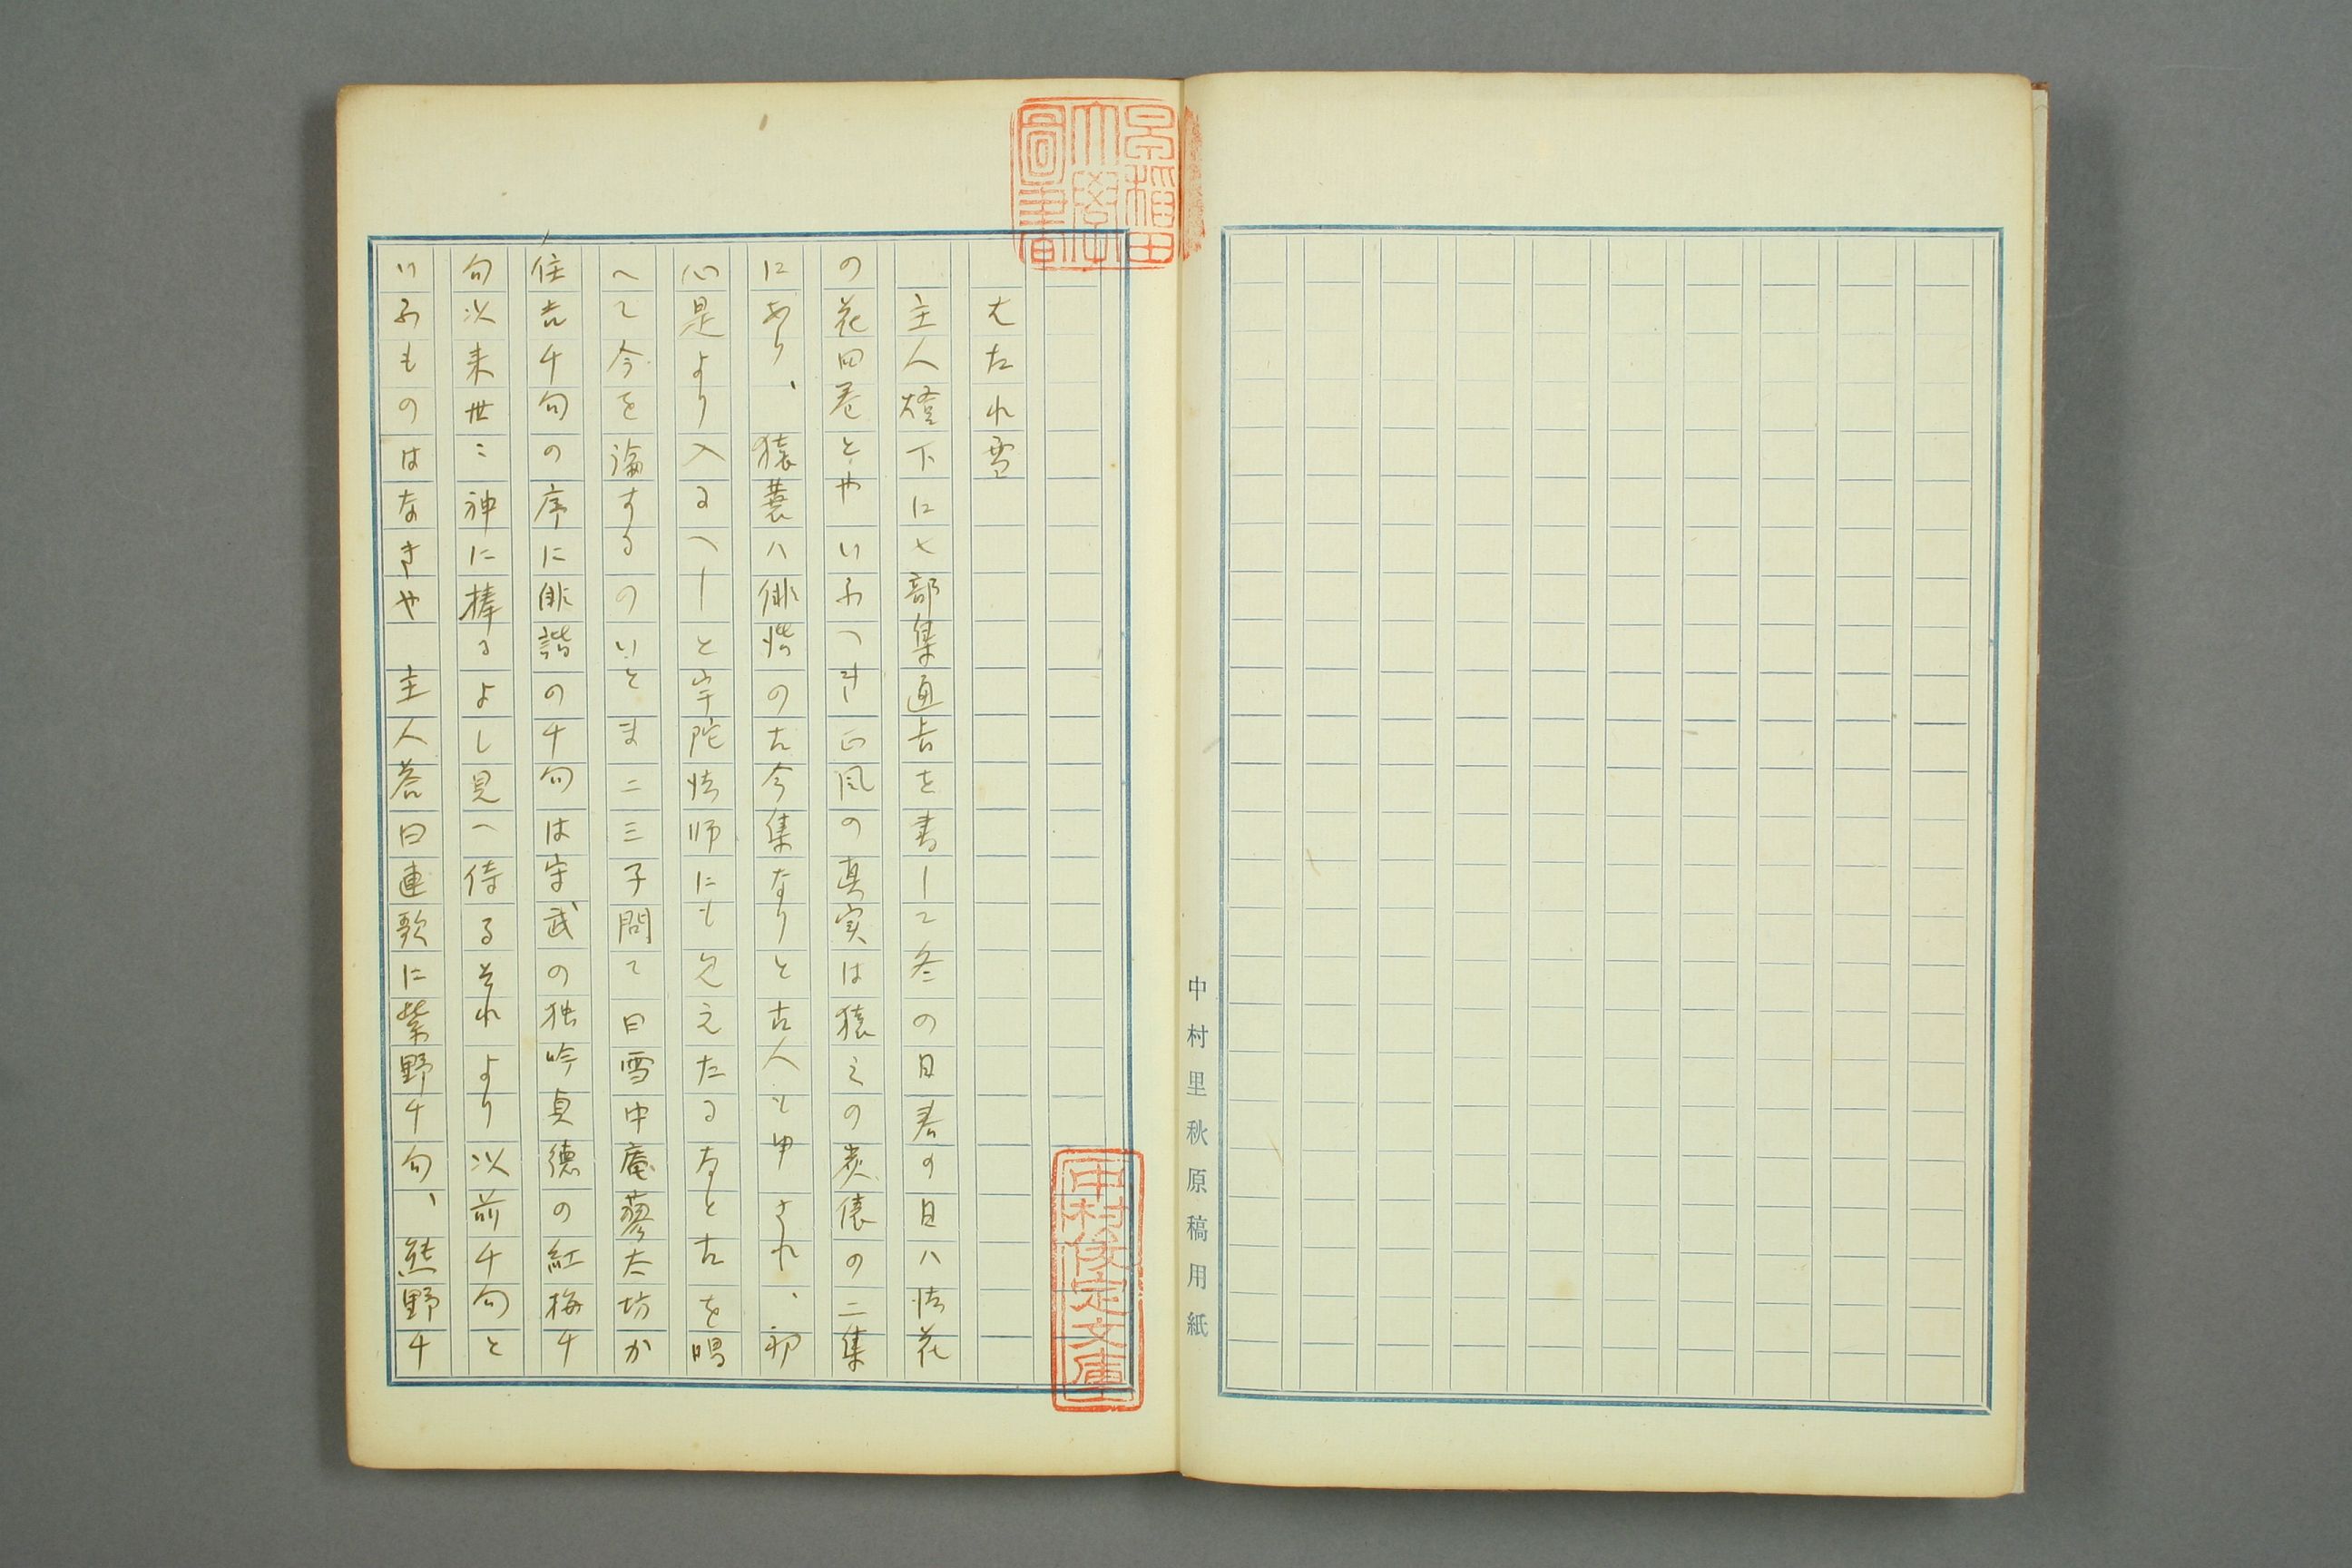 中村里秋原稿用紙
早稲田大學圖書
はたれ雪
主人燈下に七部集通旨を書して冬の日春の日ハ恬花
の花田巻とやいふへき正風の真実は猿ミの炭俵の二集
にあり、猿蓑ハ俳諧の古今集なりと古人も申され、初
心是より入るへしと宇陀恬師にも見えたるなと古を唱
へて今を論するのいとま二三子問て曰雪中庵蓼太坊か
住吉千句の序に俳諧の千句は守武の独吟貞徳の紅梅千
句以来世ニ神に捧るよし見へ侍るそれより以前千句と
いふものはなきや　主人答曰連歌に紫野千句、熊野千
中村俊定文庫